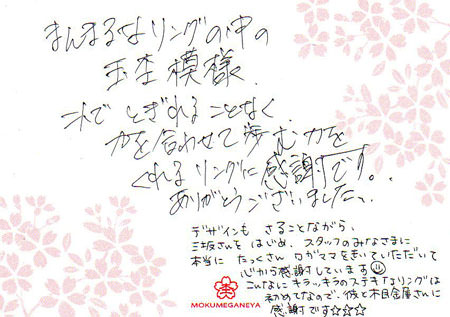 まんまるなリングの中の
杢模様、
これで とぎれることなく
力を合わせて歩む力を
くれるリングに感謝です。
ありがとうございました。
デザインも さることながら、
三坂さんを はじめ、スタッフのみなさまに
本当に たっくさん ワガママをきいていただいて
心から感謝しています
こんなに キラッキラのステキなリングは
初めてなので、彼と木目金屋さんに
感謝です☆☆☆
MOKUMEGANEYA